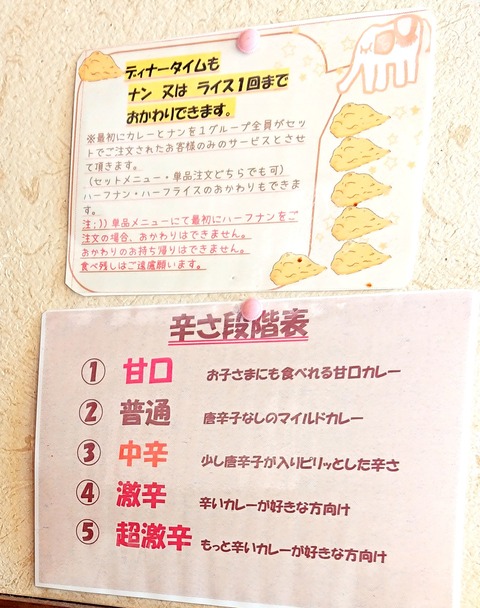 ディナータイムも
ナン 又は ライス1回まで
おかわりできます。
※最初にカレーとナンを1グループ全員がセッ
トでご注文されたお客様のみのサービスとさせ
て頂きます。
(セットメニュー・単品注文どちらでも可)
ハーフナン・ハーフライスのおかわりもできま
す。
注:))単品メニューにて最初にハーフナンをご
注文の場合、おかわりはできません。
おかわりのお持ち帰りはできません。
食べ残しはご遠慮願います。
辛さ段階表
① 甘口 お子さまにも食べれる甘口カレー
② 普通 唐辛子なしのマイルドカレー
③ 中辛 少し唐辛子が入りピリッとした辛さ
④ 激辛 辛いカレーが好きな方向け
⑤ 超激辛 もっと辛いカレーが好きな方向け